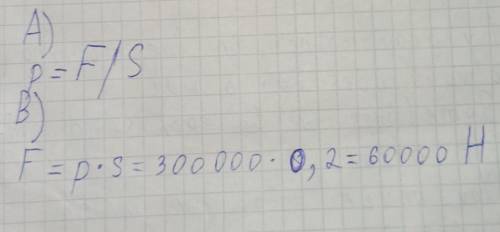 A)
p = F/S
B)
F = p·s = 300000·0,2 = 60000 H